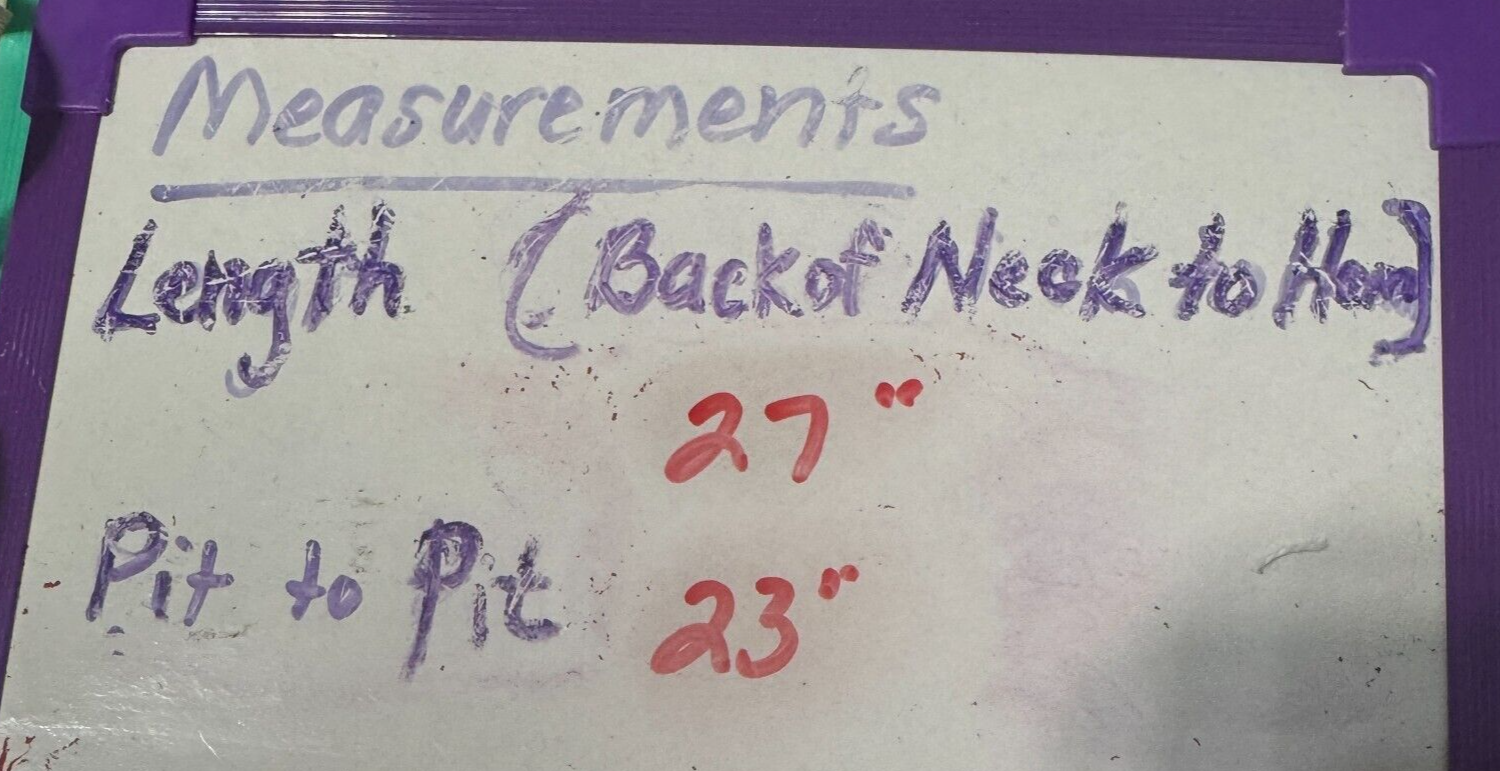 Measurements
Length (Back of Neck to Hem)
27"
Pit to Pit 23"